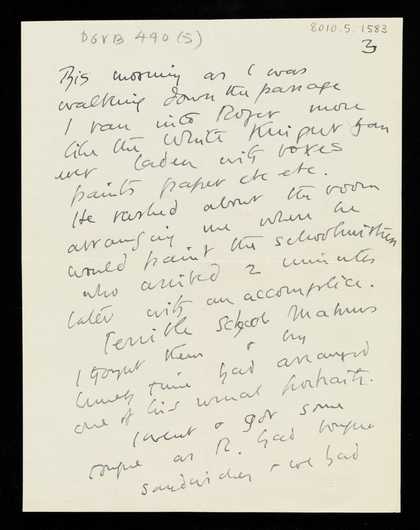 DGVB 490 (S)
8010.5.1583
3
This morning as I was
walking down the passage
I ran into Roger more
like the White Knight than
ever laden with boxes
paints paper etc etc.
He rushed about the room
arranging me where he
would paint the schoolmistress
who arrived 2 minutes
later with an accomplice.
Terrible School Mahms
I forgot them & by
lunch time had arranged
one of his usual portraits.
I went & got some
tongue as R. had tongue
sandwiches & we had